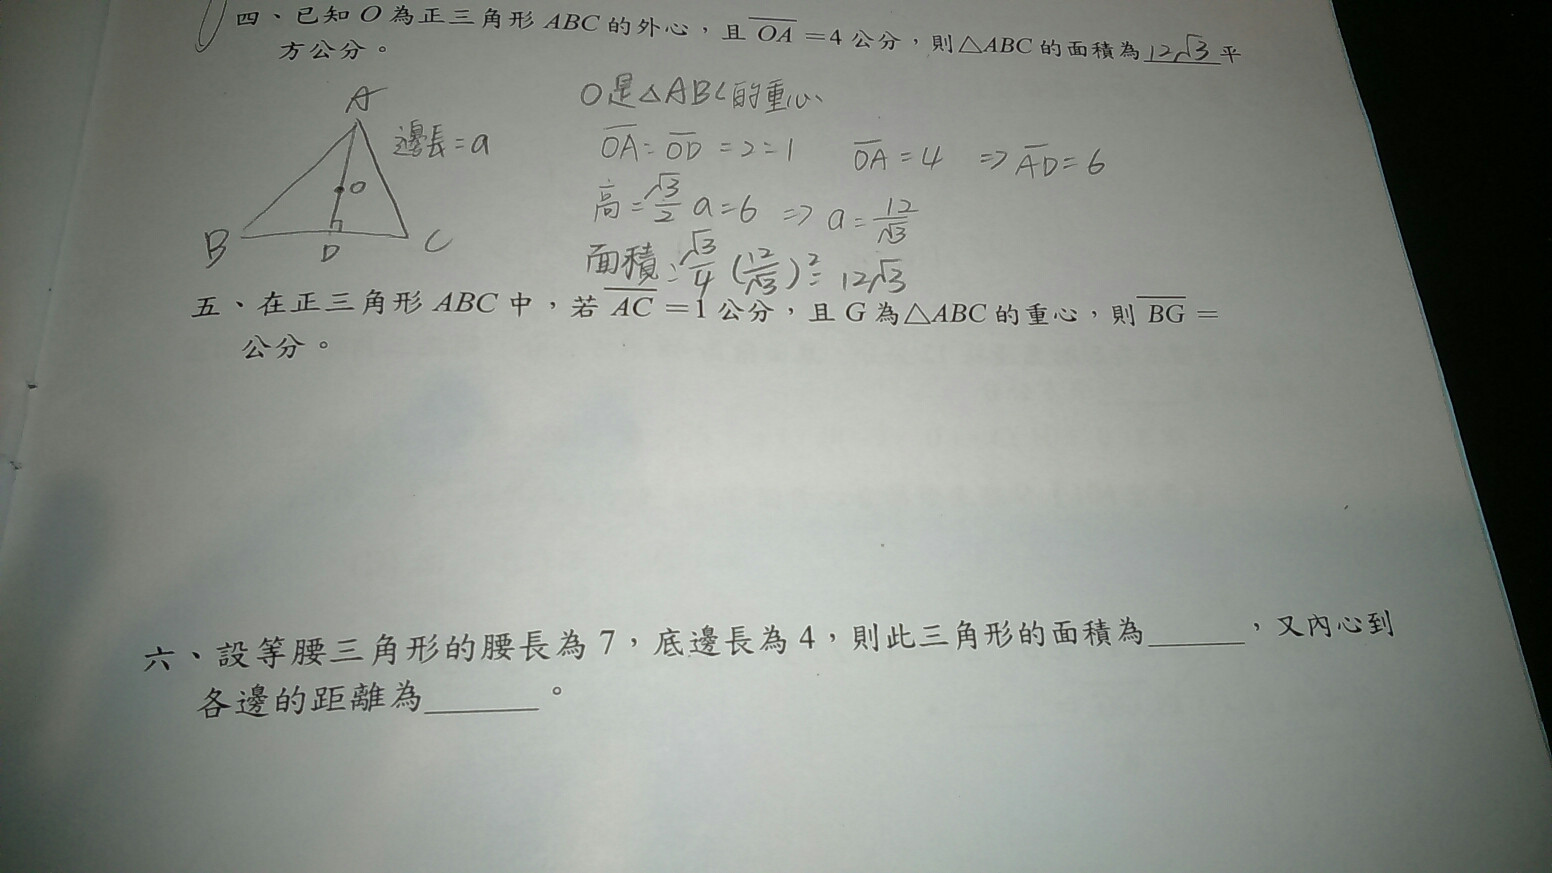 四、已知 O 為正三角形 ABC 的外心，且 OA =4 公分，則△ABC 的面積為 12√3 平
方公分。
A
O是△ABC的重心
邊長=a
OA:OD=2:1 OA=4 ⇒ AD=6
O
高=√3/2 a=6 ⇒ a=12/√3
B D C
面積=√3/4 (12/√3)²=12√3
五、在正三角形 ABC 中，若 AC =1 公分，且 G 為△ABC 的重心，則 BG =
公分。
六、設等腰三角形的腰長為 7，底邊長為 4，則此三角形的面積為______，又內心到
各邊的距離為______。